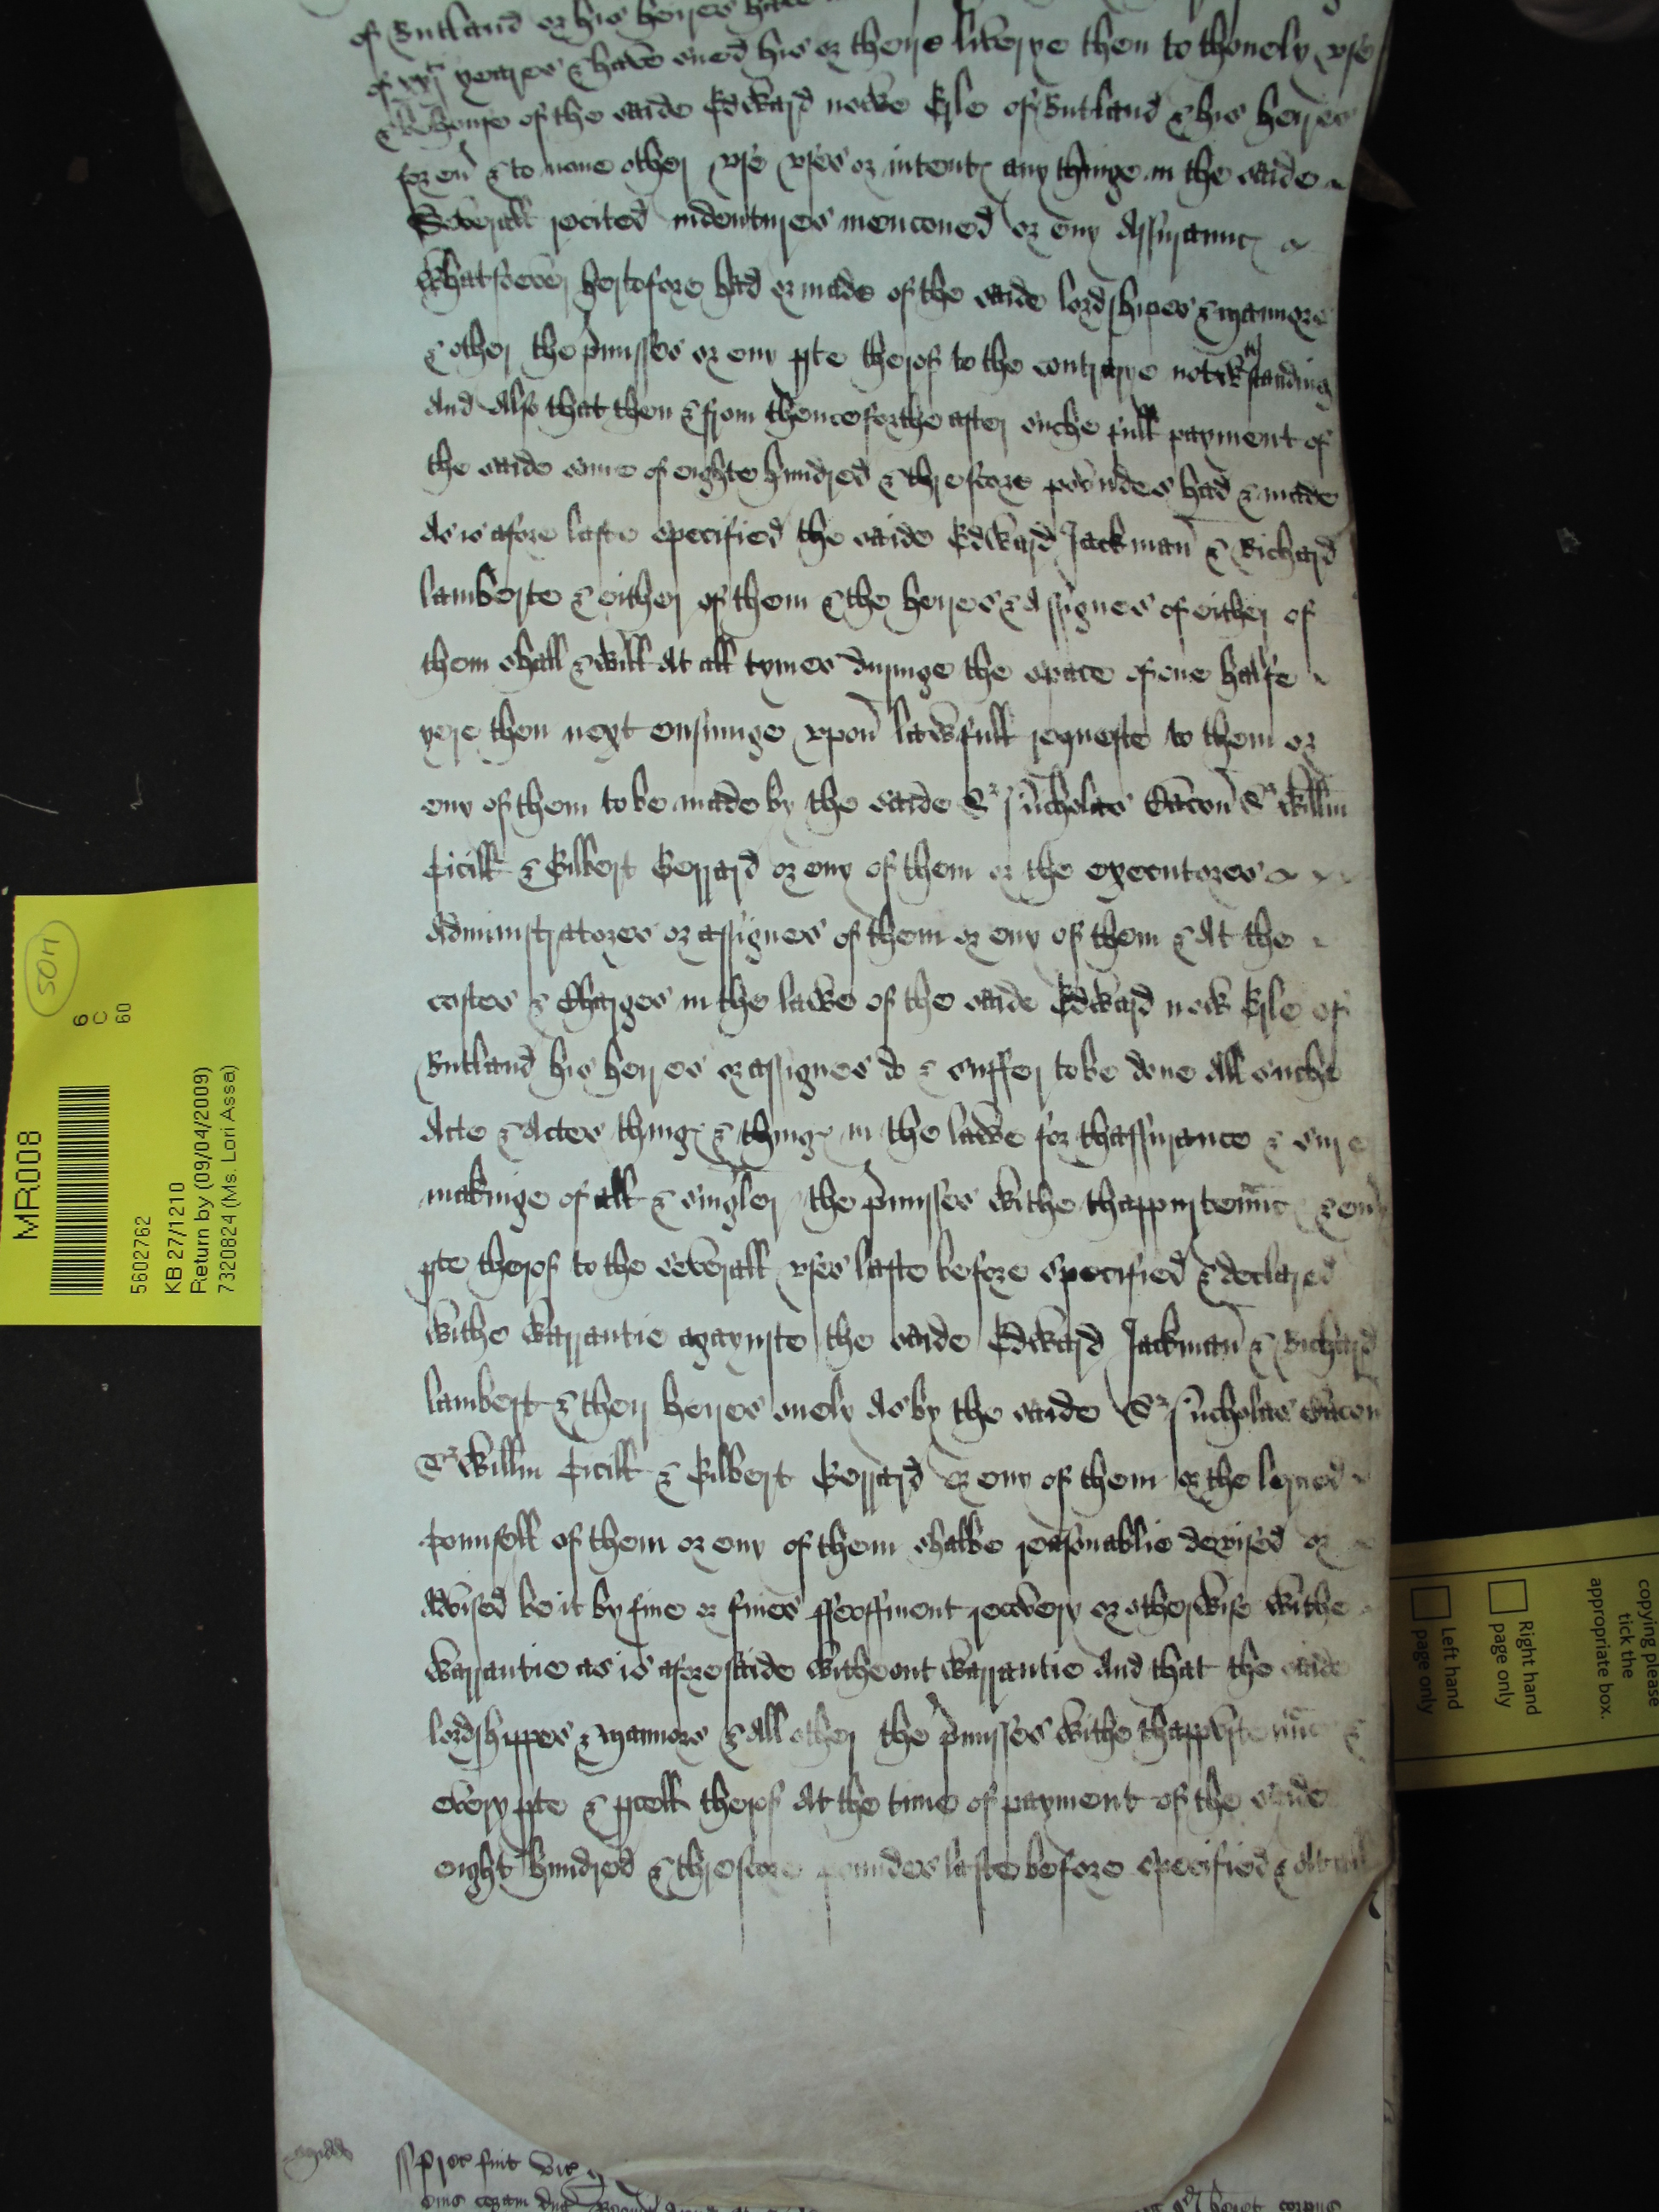 of Rutland or his heires have
of xxj yeares & have sued his or theire liverye then to thonely use
& behoufe of the saide Edward nowe Erle of Rutland & his heires
for ev & to none other use uses or intent any thinge in the saide
Severall recited indentures menconed or eny Assurannc
Whatsoever hertofore had or made of the saide lordshipes & mannors
& other the pmisses or eny pte therof to the contrarye notwthstanding
And Also that then & from thenceforthe after suche full payment of
the saide some of eighte hundred & threscore poundes had & made
As is afore laste specified the saide Edward Jackman & Richard
Lamberte & either of them & the heires & Assignes of either of
them shall & will At all tymes duringe the space of one halfe
yere then next ensuinge upon lawfull requeste to them or
eny of them to be made by the saide Sr Nicholas Bacon Sr Willm
Cicill & Gilbert Gerrard or eny of them or the executores
Administratores or assignes of them or eny of them & At the
costes & Charges in the lawe of the saide Edward now Erle of
Rutland his heires or assignes do & suffer to be done All suche
Acte & Actes thing & thing in the lawe for thassurance & sure
makinge of all & singler the pmisses withe thappurtennc & eny
pte therof to the severall uses laste before specified & declared
withe warrantie agaynste the saide Edward Jackman & Richard
Lambert & their heires onely As by the saide Sr Nicholas Bacon
Sr Willm Cicill & Gilbert Gerrard or eny of them or the lerned
Counsell of them or eny of them shalbe reasonablie devised or
Advised be it by fine or fines ffeoffment recovery or otherwise withe
warrantie as is aforesaide witheout warrantie And that the saide
lordshippes & mannors & All other the pmisses withe thapprtennc &
every pte & pcell therof At the time of payment of the saide
eight hundred & threscore poundes laste before specified & At all
MR008
5602762
KB 27/1210
Return by (09/04/2009)
7320824 (Ms. Lori Assa)
6
C
60
copying please
tick the
appropriate box.
Right hand
page only
Left hand
page only